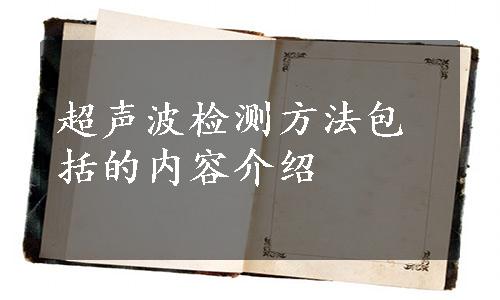 超声波检测方法包
括的内容介绍